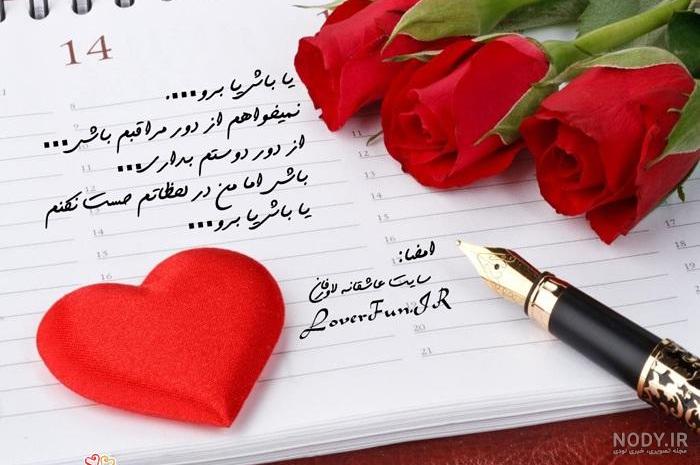 14
یا باش یا برو....
نمیخواهم از دور مراقبم باشی...
از دور دوستم بداری...
باشی اما من در لحظاتم حست نکنم
یا باش یا برو...
امضا:
سایت عاشقانه لاورفان
LoverFun.IR
NODY.IR
مجله تصویری، خبری نودی